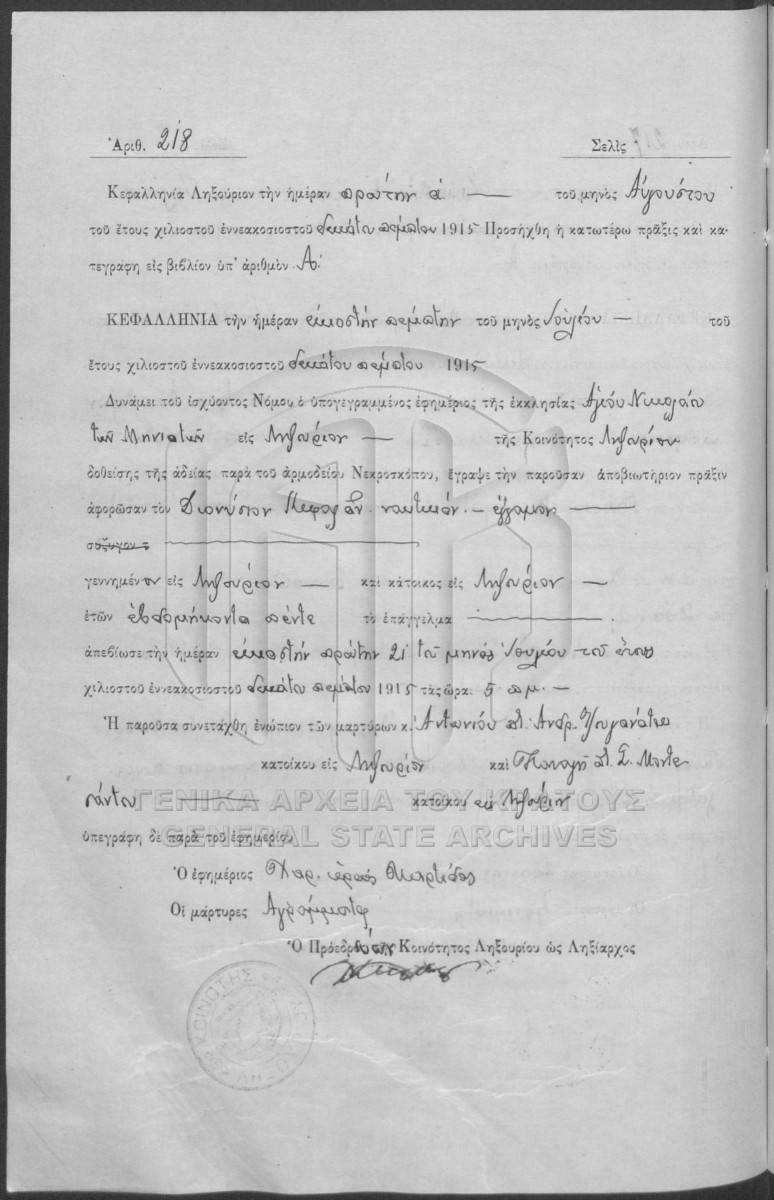 Ἀριθ. 218
Σελὶς
Κεφαλληνία Ληξούριον τὴν ἡμέραν πρώτην α τοῦ μηνὸς Αὐγούστου
τοῦ ἔτους χιλιοστοῦ ἐννεακοσιοστοῦ δεκάτου πέμπτου 1915 Προσήχθη ἡ κατωτέρω πρᾶξις καὶ κα-
τεγράφη εἰς βιβλίον ὑπ' ἀριθμὸν Α.
ΚΕΦΑΛΛΗΝΙΑ τὴν ἡμέραν εἰκοστὴν πέμπτην τοῦ μηνὸς Ἰουλίου τοῦ
ἔτους χιλιοστοῦ ἐννεακοσιοστοῦ δεκάτου πέμπτου 1915
Δυνάμει τοῦ ἰσχύοντος Νόμου ὁ ὑπογεγραμμένος ἐφημέριος τῆς ἐκκλησίας Ἁγίου Νικολάου
τῶν Μηνιατῶν εἰς Ληξούριον τῆς Κοινότητος Ληξουρίου
δοθείσης τῆς ἀδείας παρὰ τοῦ ἁρμοδείου Νεκροσκόπου, ἔγραψε τὴν παροῦσαν ἀποβιωτήριον πρᾶξιν
ἀφορῶσαν τὸν Διονύσιον ναυτικόν. ἔγγαμον
σύζυγον τ
γεννημένον εἰς Ληξούριον καὶ κάτοικος εἰς Ληξούριον
ἐτῶν ἑβδομήκοντα πέντε τὸ ἐπάγγελμα
ἀπεβίωσε τὴν ἡμέραν εἰκοστὴν πρώτην 21 τοῦ μηνὸς Ἰουλίου τοῦ ἔτους
χιλιοστοῦ ἐννεακοσιοστοῦ δεκάτου πέμπτου 1915 τὰς ὥρα. 5 π.μ.
Ἡ παροῦσα συνετάχθη ἐνώπιον τῶν μαρτύρων κ. Ἀντωνίου Ἀνδρ.
κατοίκου εἰς Ληξούριον καὶ Παναγῆ Σ. Μοντε
σάντου κατοίκου εἰς Ληξούριον
ΓΕΝΙΚΑ ΑΡΧΕΙΑ ΤΟΥ ΚΡΑΤΟΥΣ
GENERAL STATE ARCHIVES
ὑπεγράφη δὲ παρὰ τοῦ ἐφημερίου
Ὁ ἐφημέριος Χαρ. ἱερεὺς
Οἱ μάρτυρες Ἀγράμματοι
Ὁ Πρόεδρος τῆς Κοινότητος Ληξουρίου ὡς Ληξίαρχος